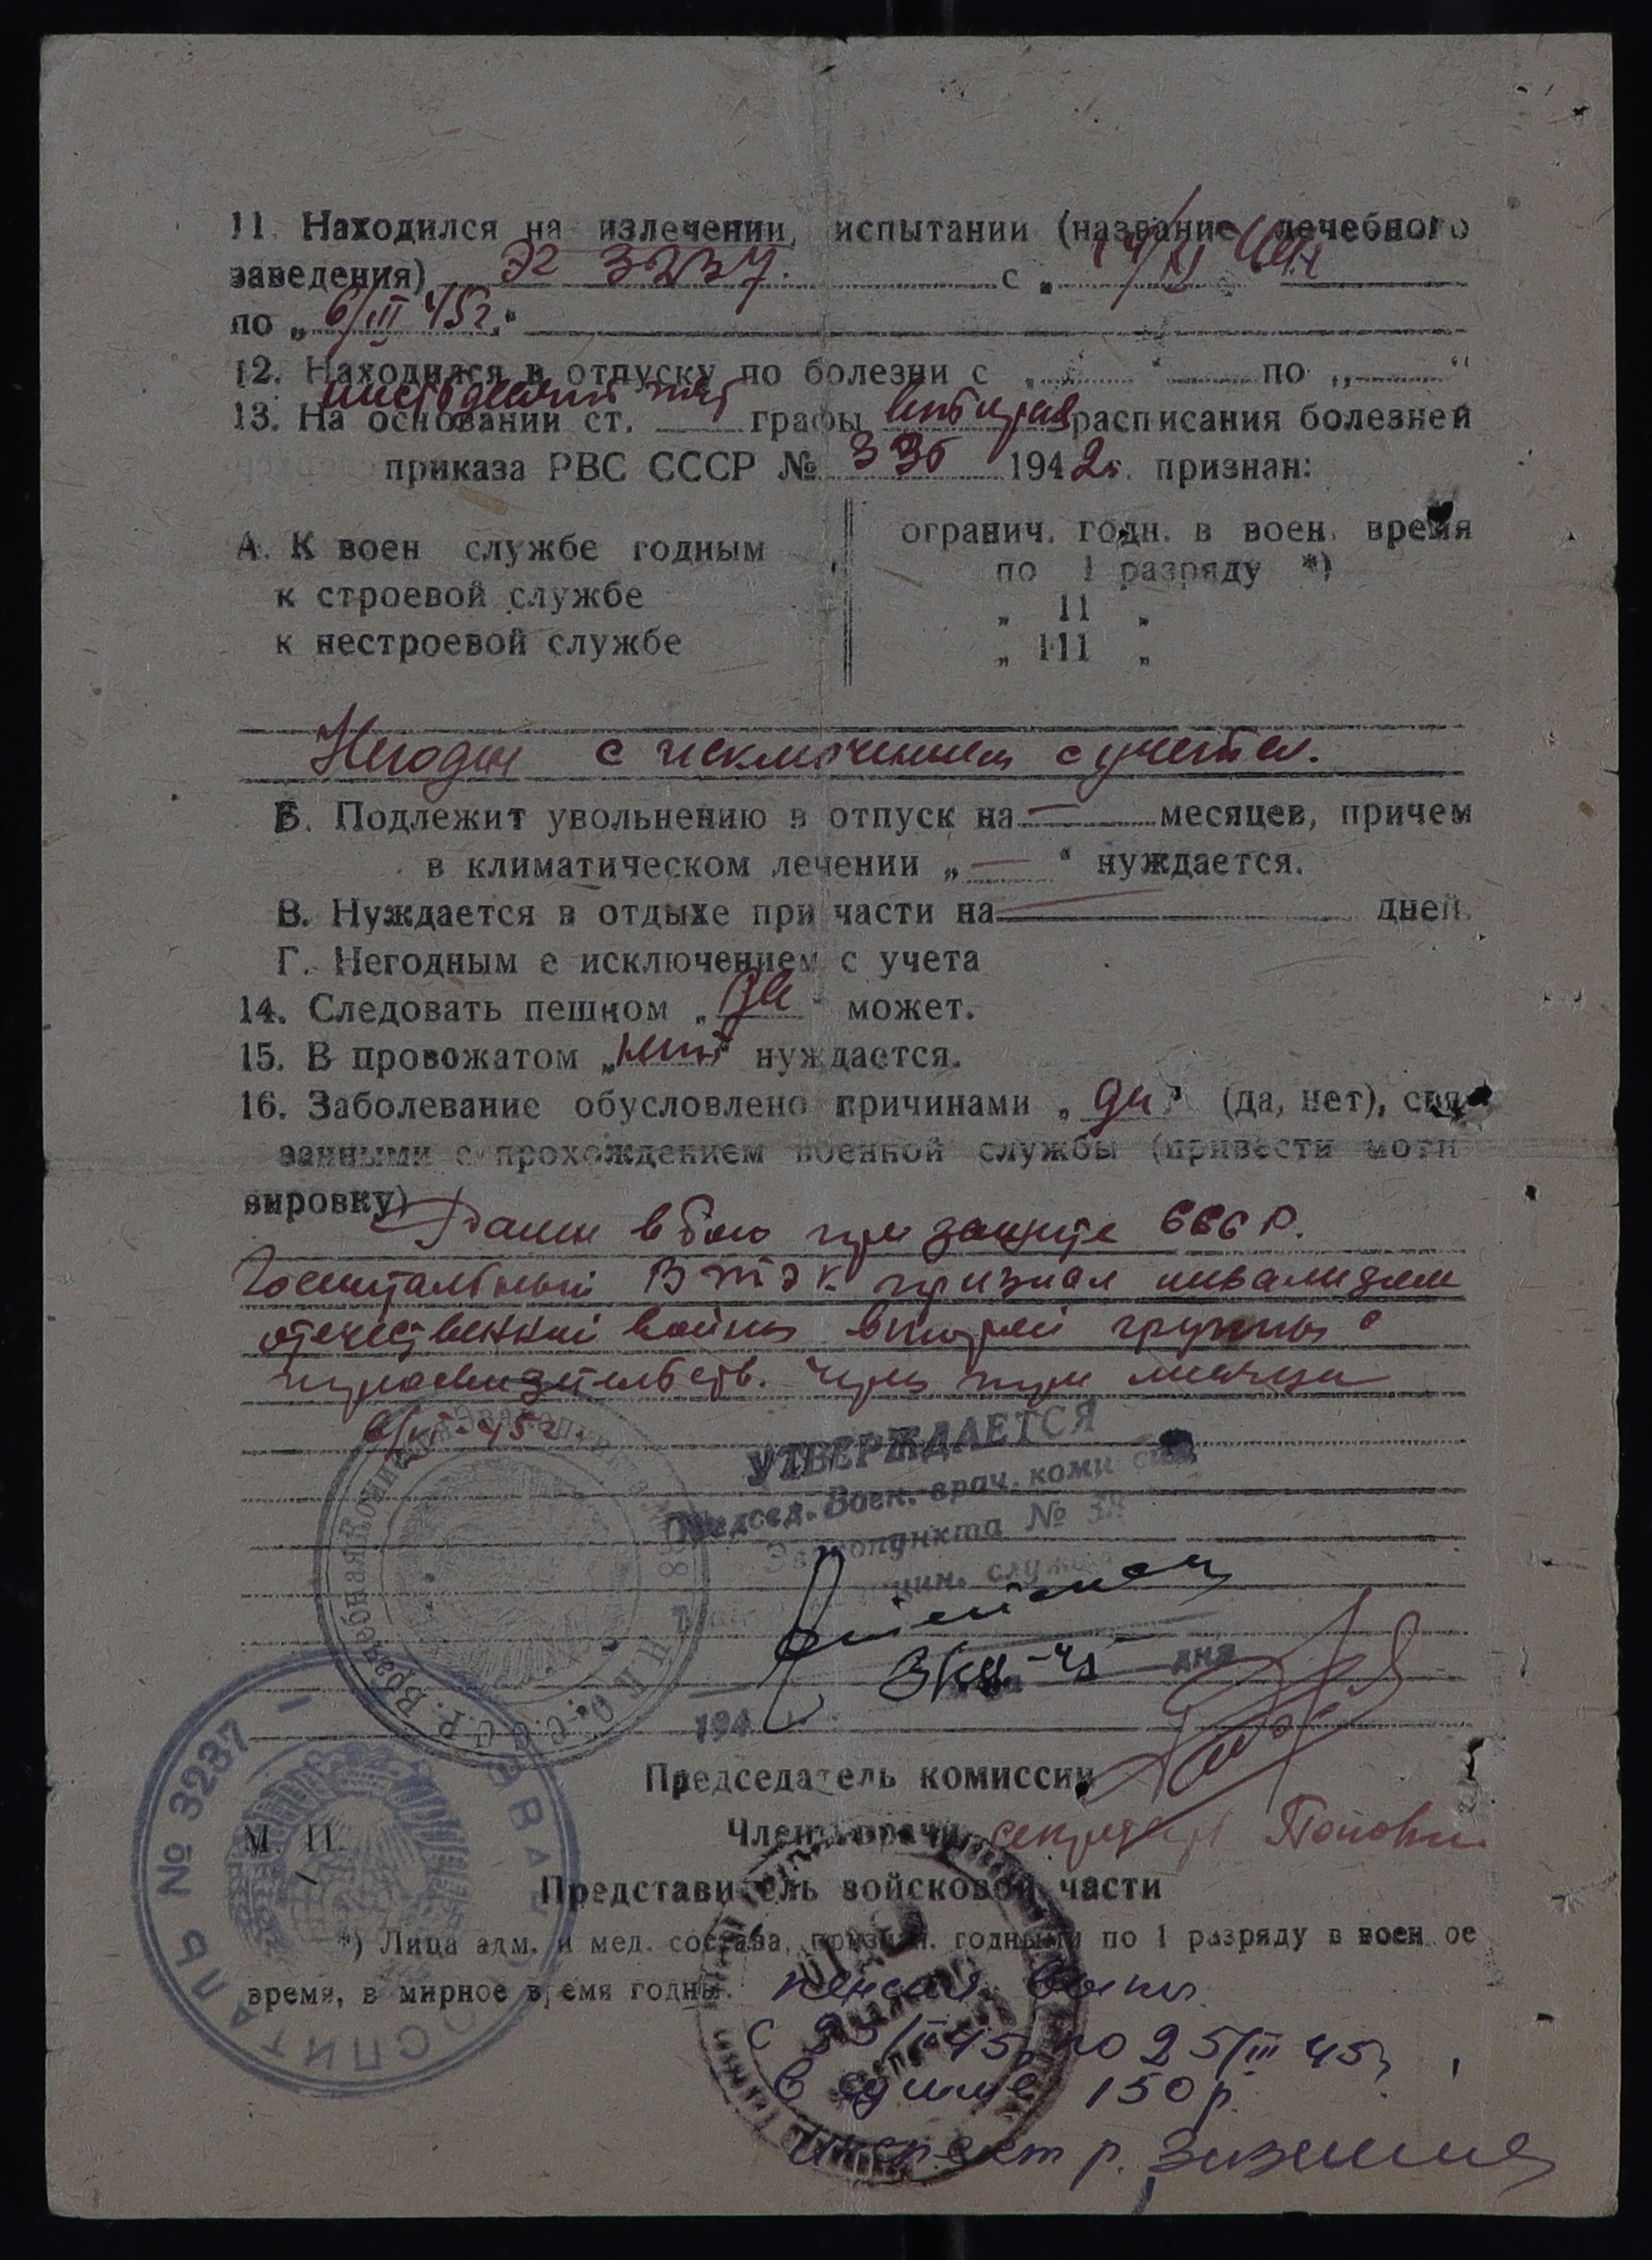 11. Находился на излечении, испытании (название лечебного
заведения) ЭГ 3237. с „
по „6/III 45г.“
12. Находился в отпуску по болезни с „ “ по „ “
13. На основании ст. графы расписания болезней
приказа РВС СССР № 336 1942г. признан:
А. К воен службе годным
к строевой службе
к нестроевой службе
огранич. годн. в воен. время
по 1 разряду *)
„ 11 „
„ 111 „
Негоден с исключением с учета.
Б. Подлежит увольнению в отпуск на — месяцев, причем
в климатическом лечении „ — “ нуждается.
В. Нуждается в отдыхе при части на — дней.
Г. Негодным е исключением с учета
14. Следовать пешком „да“ может.
15. В провожатом „нет“ нуждается.
16. Заболевание обусловлено причинами „да“ (да, нет), свя
занными с прохождением военной службы (привести моти
вировку)
Ранен в бою при защите СССР.
Госпитальный ВТЭК признал инвалидом
отечественной войны второй группы с
через три месяца
6/III-45г.
УТВЕРЖДАЕТСЯ
Председ. Воен.-врач. комиссии
Эвакопункта №
цин. служ
3/III-45 дня
194
Председатель комиссии
Члены врачи секретарь
М. П.
Представитель войсковой части
*) Лица адм. и мед. состава, признан. годными по 1 разряду в воен ое
время, в мирное время годны.
ГОСПИТАЛЬ № 3237
с 25/II 45 по 25/III 45г
в сумме 150 р.